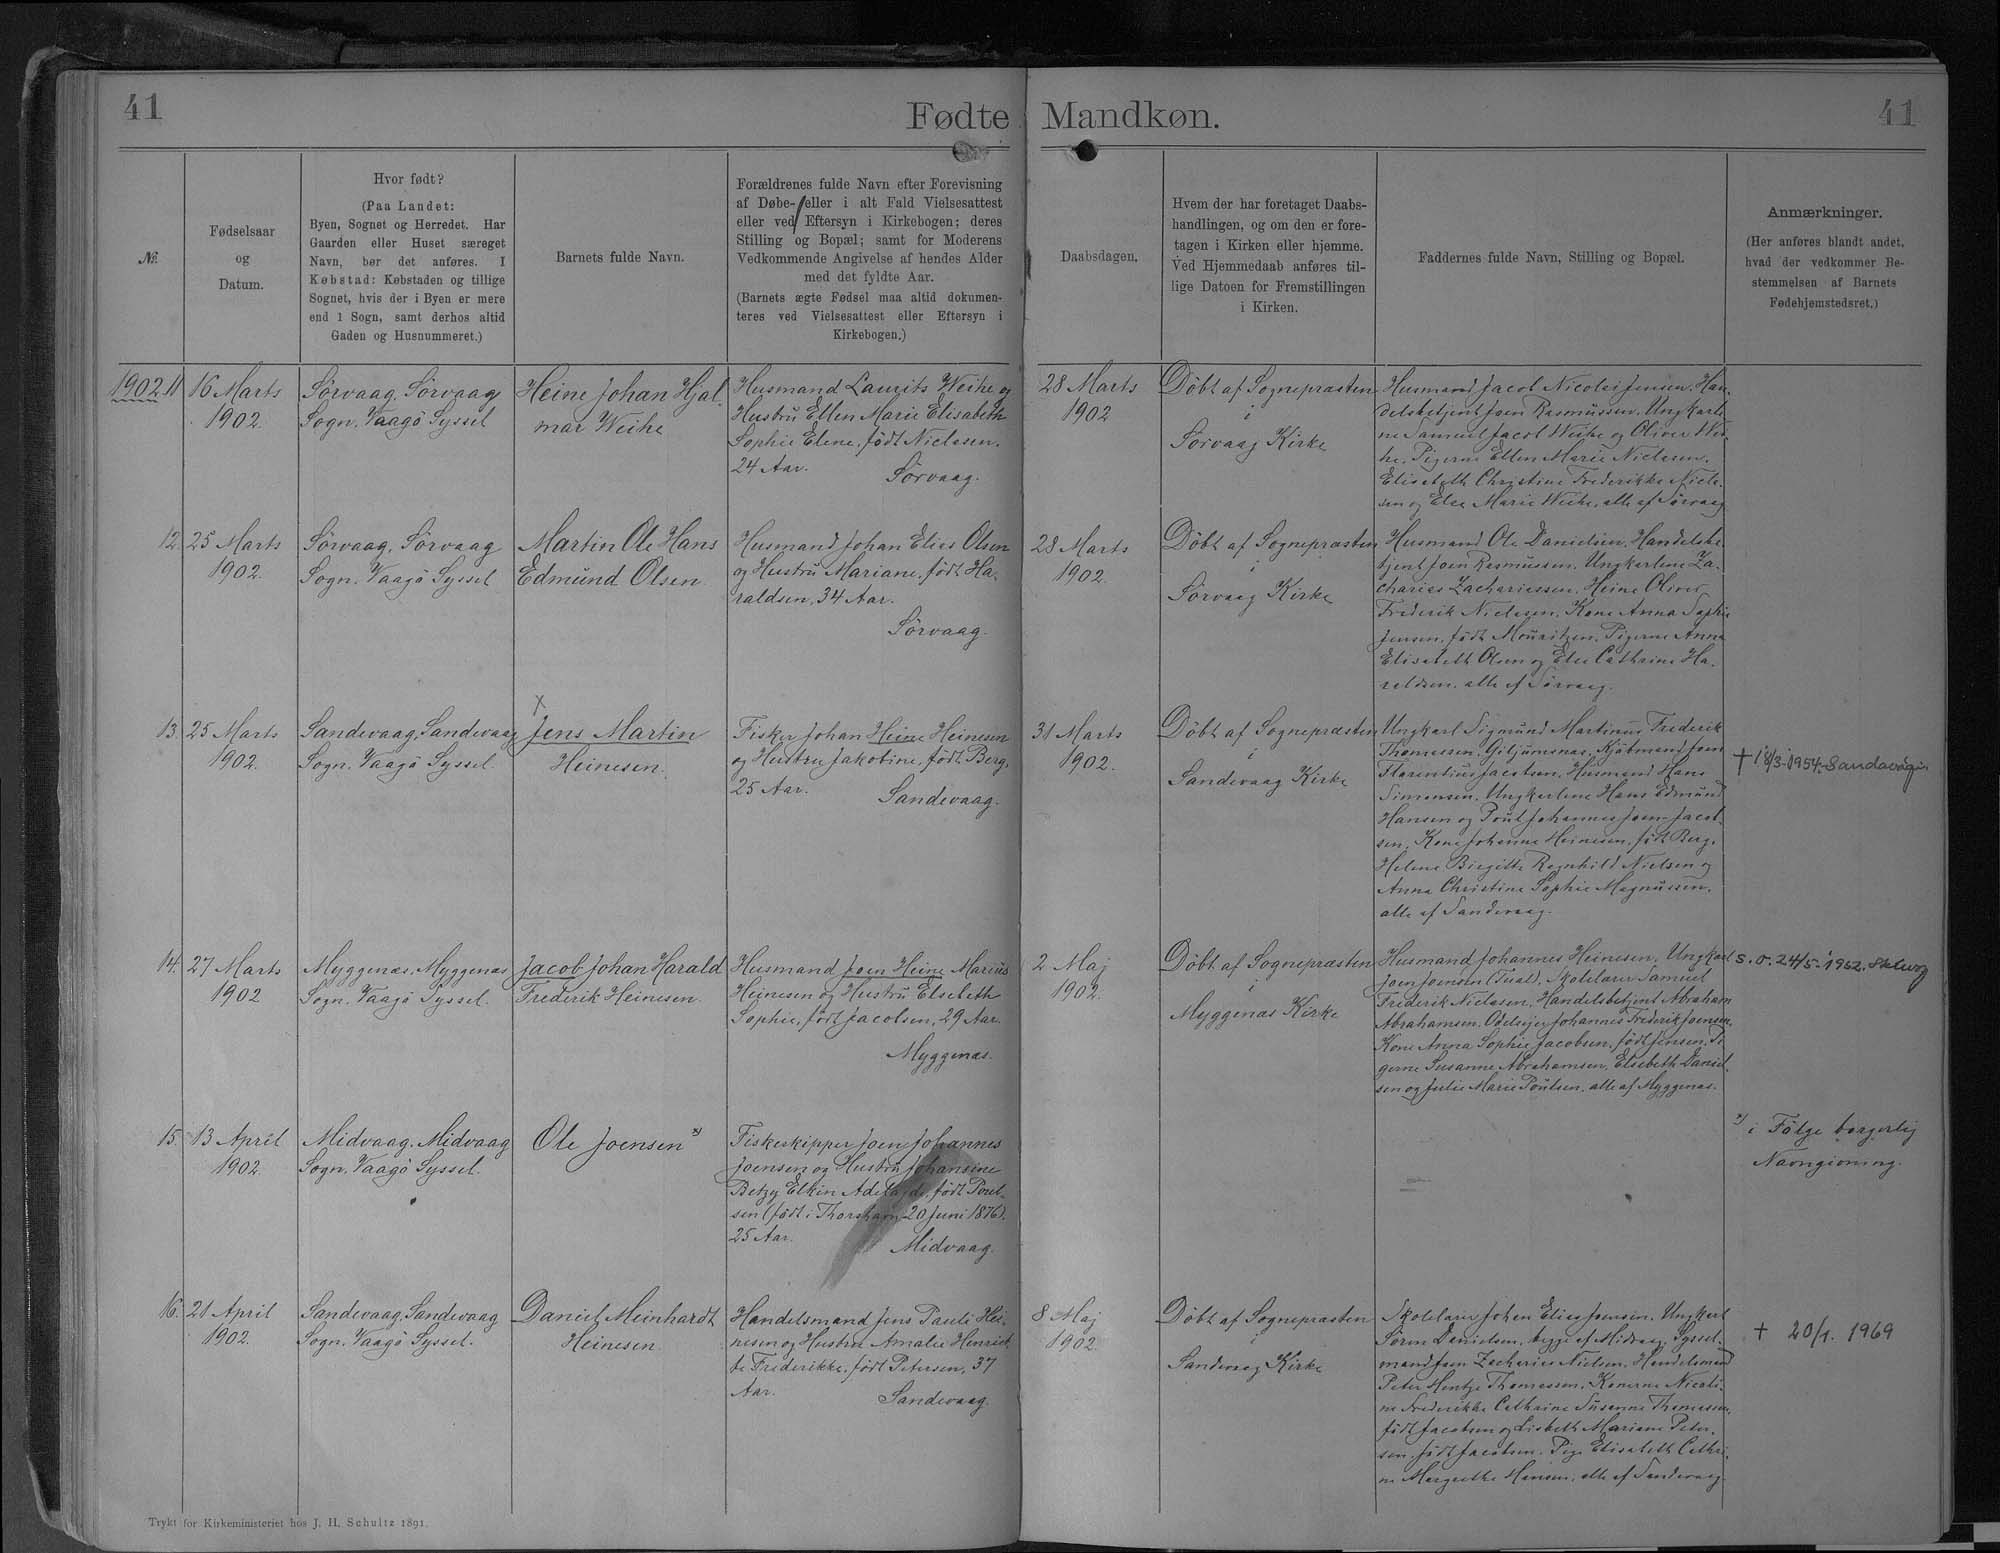 41
Fødte Mandkøn.
41
№.
Fødselsaar
og
Datum.
Hvor født?
(Paa Landet:
Byen, Sognet og Herredet. Har
Gaarden eller Huset særeget
Navn, bør det anføres. I
Købstad: Købstaden og tillige
Sognet, hvis der i Byen er mere
end 1 Sogn, samt derhos altid
Gaden og Husnummeret.)
Barnets fulde Navn.
Forældrenes fulde Navn efter Forevisning
af Døbe- eller i alt Fald Vielsesattest
eller ved Eftersyn i Kirkebogen; deres
Stilling og Bopæl; samt for Moderens
Vedkommende Angivelse af hendes Alder
med det fyldte Aar.
(Barnets ægte Fødsel maa altid dokumen-
teres ved Vielsesattest eller Eftersyn i
Kirkebogen.)
Daabsdagen.
Hvem der har foretaget Daabs-
handlingen, og om den er fore-
tagen i Kirken eller hjemme.
Ved Hjemmedaab anføres til-
lige Datoen for Fremstillingen
i Kirken.
Faddernes fulde Navn, Stilling og Bopæl.
Anmærkninger.
(Her anføres blandt andet,
hvad der vedkommer Be-
stemmelsen af Barnets
Fødehjemstedsret.)
1902 11
16 Marts
1902.
Sörvaag, Sörvaag
Sogn, Vaagö Syssel
Heine Johan Hjal-
mar Weihe
Husmand Laurits Weihe og
Hustru Ellen Marie Elisabeth
Sophie Elene, född Niclasen,
24 Aar.
Sörvaag.
28 Marts
1902
Döbt af Sognepræsten
i
Sörvaag Kirke
Husmand Jacob Nicolai Jensen, Han-
delsbetjent Joen Rasmussen, Ungkarle-
ne Samuel Jacob Weihe og Oliver Wei-
he, Pigerne Ellen Marie Niclasen,
Elisabeth Christine Frederikke Nicla-
sen og Else Marie Weihe, alle af Sörvaag
12.
25 Marts
1902.
Sörvaag, Sörvaag
Sogn, Vaagö Syssel
Martin Ole Hans
Edmund Olsen
Husmand Johan Elias Olsen
og Hustru Mariane, född Ha-
raldsen, 34 Aar.
Sörvaag.
28 Marts
1902.
Döbt af Sognepræsten
i
Sörvaag Kirke
Husmand Ole Danielsen, Handelsbe-
tjent Joen Rasmussen, Ungkarlene Za-
charias Zachariassen, Heine Oliver
Frederik Niclasen, Kone Anna Sophie
Jensen, födt Mouritzen, Pigerne Anna
Elisabeth Olsen og Else Cathrine Ha-
raldsen, alle af Sörvaag.
13.
25 Marts
1902.
Sandevaag, Sandevaag
Sogn, Vaagö Syssel.
x
Jens Martin
Heinesen.
Fisker Johan Heine Heinesen
og Hustru Jakobine, född Berg,
25 Aar.
Sandevaag.
31 Marts
1902.
Döbt af Sognepræsten
i
Sandevaag Kirke
Ungkarl Sigmund Martinus Frederik
Thomassen, Giljumsnæs, Kjöbmand Joen
Florentius Jacobsen, Husmand Hans
Simonsen, Ungkarlene Hans Edmund
Hansen og Poul Johannes Joen Jacob-
sen, Kone Johanne Heinesen, födt Berg,
Helene Birgitte Ragnhild Nielsen og
Anna Christine Sophie Magnussen,
alle af Sandevaag.
† 18/3-1954.-Sandavági
14.
27 Marts
1902
Myggenæs, Myggenæs
Sogn, Vaagö Syssel.
Jacob Johan Harald
Frederik Heinesen.
Husmand Joen Heine Marius
Heinesen og Hustru Elsebeth
Sophie, född Jacobsen, 29 Aar.
Myggenæs.
2 Maj
1902.
Döbt af Sognepræsten
i
Myggenæs Kirke
Husmand Johannes Heinesen, Ungkarl
Joen Joensen, Skolelærer Samuel
Frederik Niclasen, Handelsbetjent Abraham
Abrahamsen, Odelsejer Johannes Frederik Joensen,
Kone Anna Sophie Jacobsen, födt Jensen, Pi-
gerne Susanne Abrahamsen, Elsebeth Daniel-
sen og Julie Marie Poulsen, alle af Myggenæs.
s. o. 24/5. 1952.
15.
13 April
1902.
Midvaag, Midvaag
Sogn, Vaagö Syssel.
Ole Joensen *)
Fiskeskipper Joen Johannes
Joensen og Hustru Johansine
Betzy Elkin Adelajde, född Poul-
sen (född i Thorshavn 20 Juni 1876),
25 Aar.
Midvaag.
*) i Følge borgerlig
Navngivning.
16.
21 April
1902.
Sandevaag, Sandevaag
Sogn, Vaagö Syssel.
Daniel Meinhardt
Heinesen
Handelsmand Jens Pauli Hei-
nesen og Hustru Amalie Henriet-
te Frederikke, född Petersen, 37
Aar.
Sandevaag.
8 Maj
1902.
Döbt af Sognepræsten
i
Sandevaag Kirke
Skolelærer Johan Elias Jensen, Ungkarl
Sören Danielsen, begge af Midvaag, Syssel-
mand Joen Zacharias Nielsen, Handelsmand
Peter Hentze Thomassen, Konerne Nicoli-
ne Frederikke Cathrine Susanne Thomassen,
födt Jacobsen og Lisbeth Mariane Peter-
sen, födt Jacobsen, Pige Elisabeth Cathri-
ne Margrethe Hansen, alle af Sandevaag.
† 20/1. 1969
Trykt for Kirkeministeriet hos J. H. Schultz 1891.